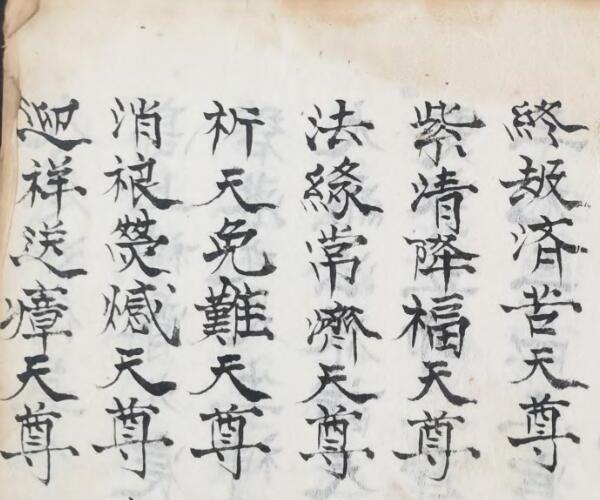 終劫済苦天尊
紫清降福天尊
法緣常濟天尊
祈天免難天尊
消祲熒憾天尊
迎祥送瘴天尊